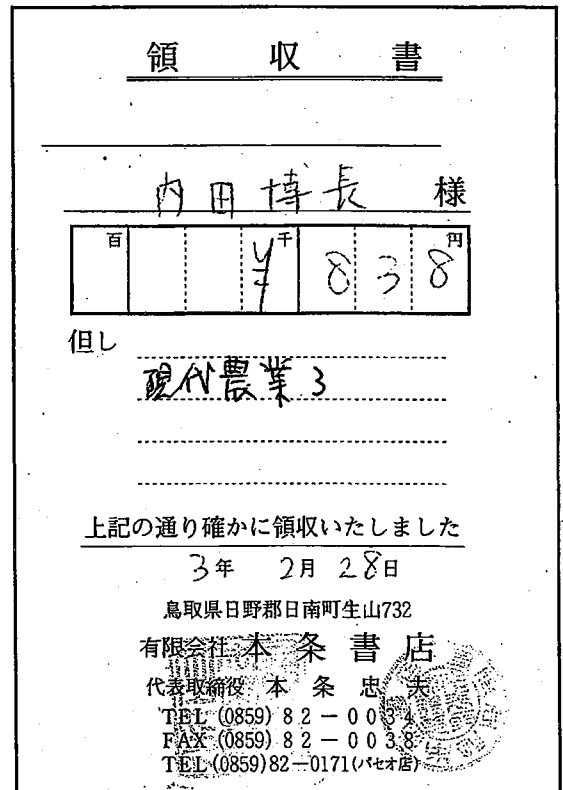 領収書
内田博長 様
百 千 円
¥838
但し
現代農業3
上記の通り確かに領収いたしました
3年 2月 28日
鳥取県日野郡日南町生山732
有限会社 本条書店
代表取締役 本条忠夫
TEL (0859) 82-0034
FAX (0859) 82-0038
TEL (0859)82-0171(パセオ店)